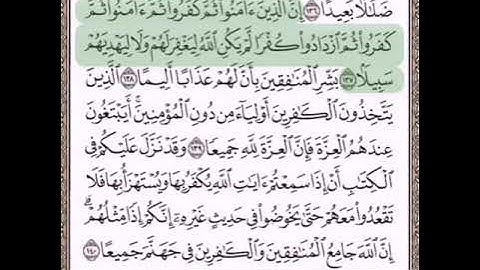 ضَلَٰلَۢا بَعِيدًا ١٣٦ إِنَّ ٱلَّذِينَ ءَامَنُوا۟ ثُمَّ كَفَرُوا۟ ثُمَّ ءَامَنُوا۟ ثُمَّ
كَفَرُوا۟ ثُمَّ ٱزْدَادُوا۟ كُفْرًا لَّمْ يَكُنِ ٱللَّهُ لِيَغْفِرَ لَهُمْ وَلَا لِيَهْدِيَهُمْ
سَبِيلًۢا ١٣٧ بَشِّرِ ٱلْمُنَٰفِقِينَ بِأَنَّ لَهُمْ عَذَابًا أَلِيمًا ١٣٨ ٱلَّذِينَ
يَتَّخِذُونَ ٱلْكَٰفِرِينَ أَوْلِيَآءَ مِن دُونِ ٱلْمُؤْمِنِينَۚ أَيَبْتَغُونَ
عِندَهُمُ ٱلْعِزَّةَ فَإِنَّ ٱلْعِزَّةَ لِلَّهِ جَمِيعًا ١٣٩ وَقَدْ نَزَّلَ عَلَيْكُمْ فِى
ٱلْكِتَٰبِ أَنْ إِذَا سَمِعْتُمْ ءَايَٰتِ ٱللَّهِ يُكْفَرُ بِهَا وَيُسْتَهْزَأُ بِهَا فَلَا
تَقْعُدُوا۟ مَعَهُمْ حَتَّىٰ يَخُوضُوا۟ فِى حَدِيثٍ غَيْرِهِۦٓۚ إِنَّكُمْ إِذًا مِّثْلُهُمْۗ
إِنَّ ٱللَّهَ جَامِعُ ٱلْمُنَٰفِقِينَ وَٱلْكَٰفِرِينَ فِى جَهَنَّمَ جَمِيعًا ١٤٠